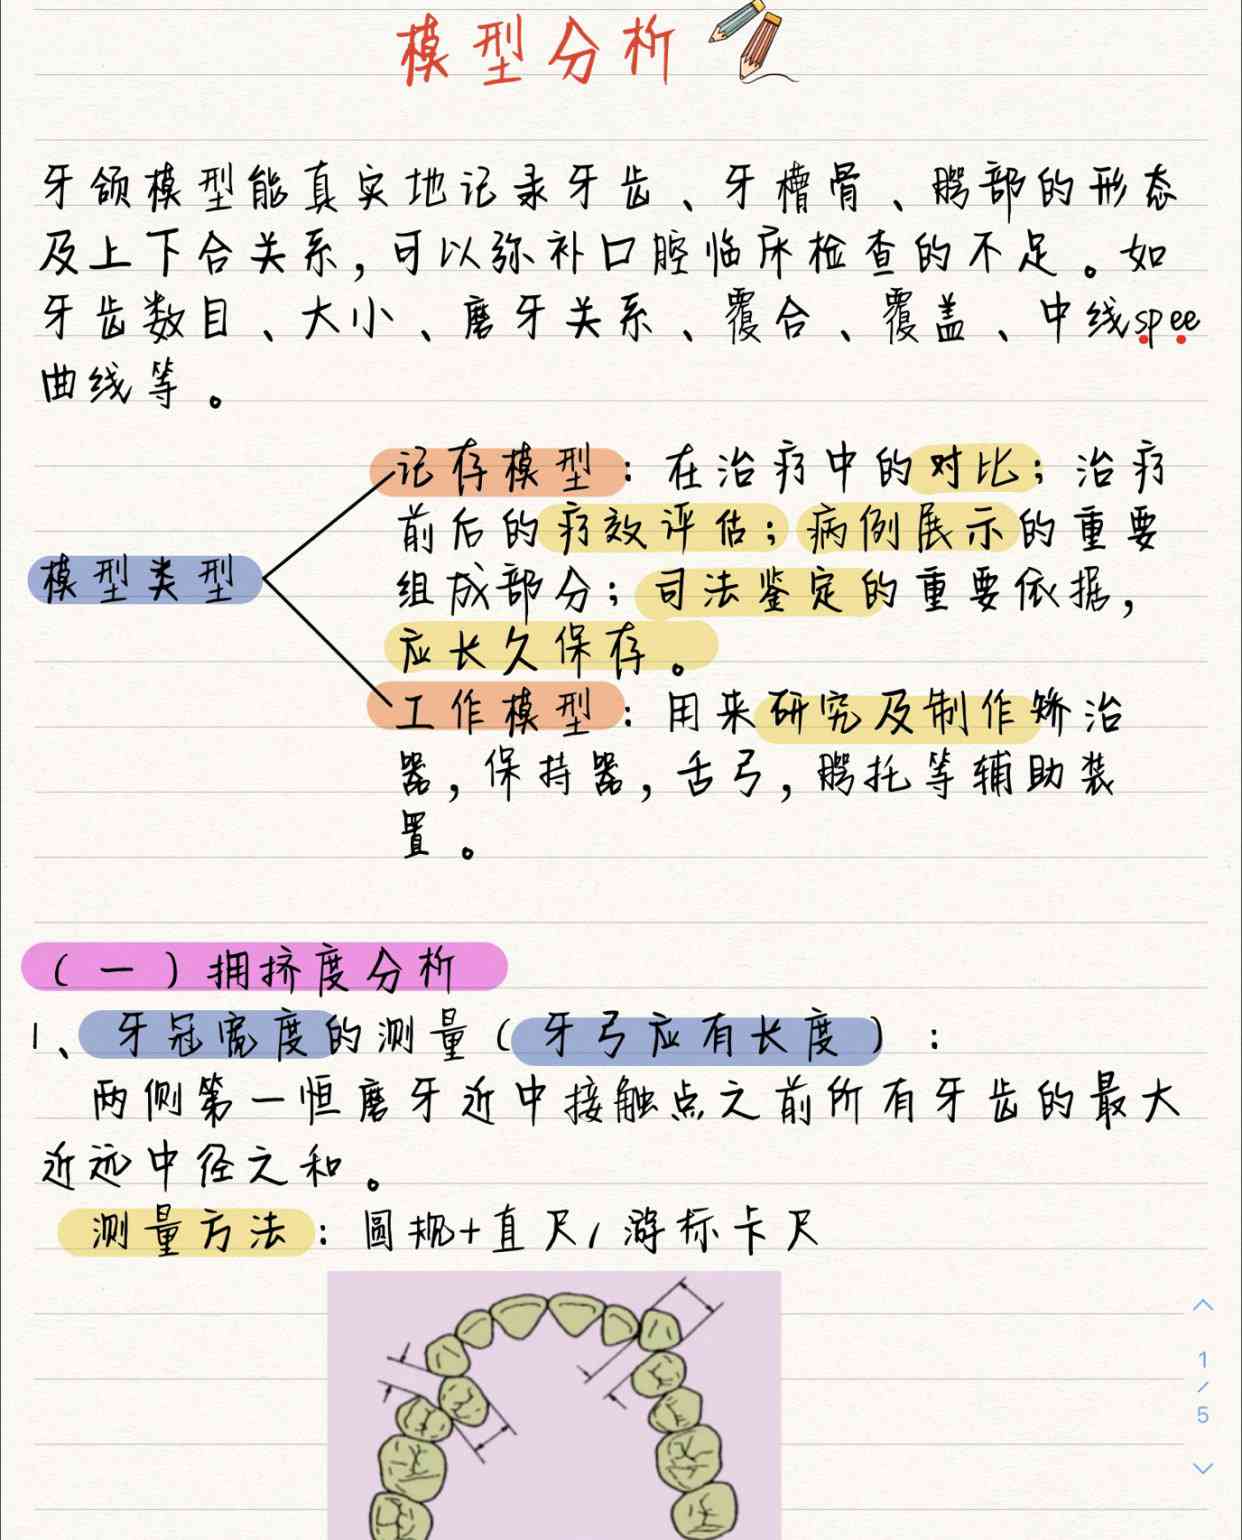 模型分析
牙颌模型能真实地记录牙齿、牙槽骨、腭部的形态
及上下合关系,可以弥补口腔临床检查的不足。如
牙齿数目、大小、磨牙关系、覆合、覆盖、中线spee
曲线等。
记存模型:在治疗中的对比;治疗
前后的疗效评估;病例展示的重要
模型类型
组成部分;司法鉴定的重要依据,
应长久保存。
工作模型:用来研究及制作矫治
器,保持器,舌弓,腭托等辅助装
置。
(一)拥挤度分析
1、牙冠宽度的测量(牙弓应有长度):
两侧第一恒磨牙近中接触点之前所有牙齿的最大
近远中径之和。
测量方法:圆规+直尺/游标卡尺
1
/
5